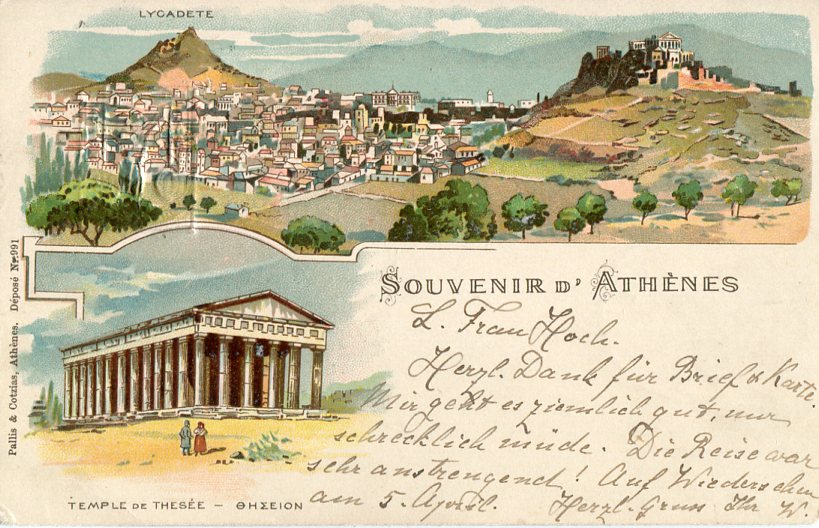 LYCADETE
Pallis & Cotzias, Athènes. Déposé No. 991
SOUVENIR D' ATHÈNES
L. Frau Hoch.
Herzl. Dank für Brief & Karte.
Mir geht es ziemlich gut, nur
schrecklich müde. Die Reise war
sehr anstrengend! Auf Wiedersehen
am 5. April. Herzl. Gruss Ihr W.
TEMPLE DE THESÉE – ΘΗΣΕΙΟΝ